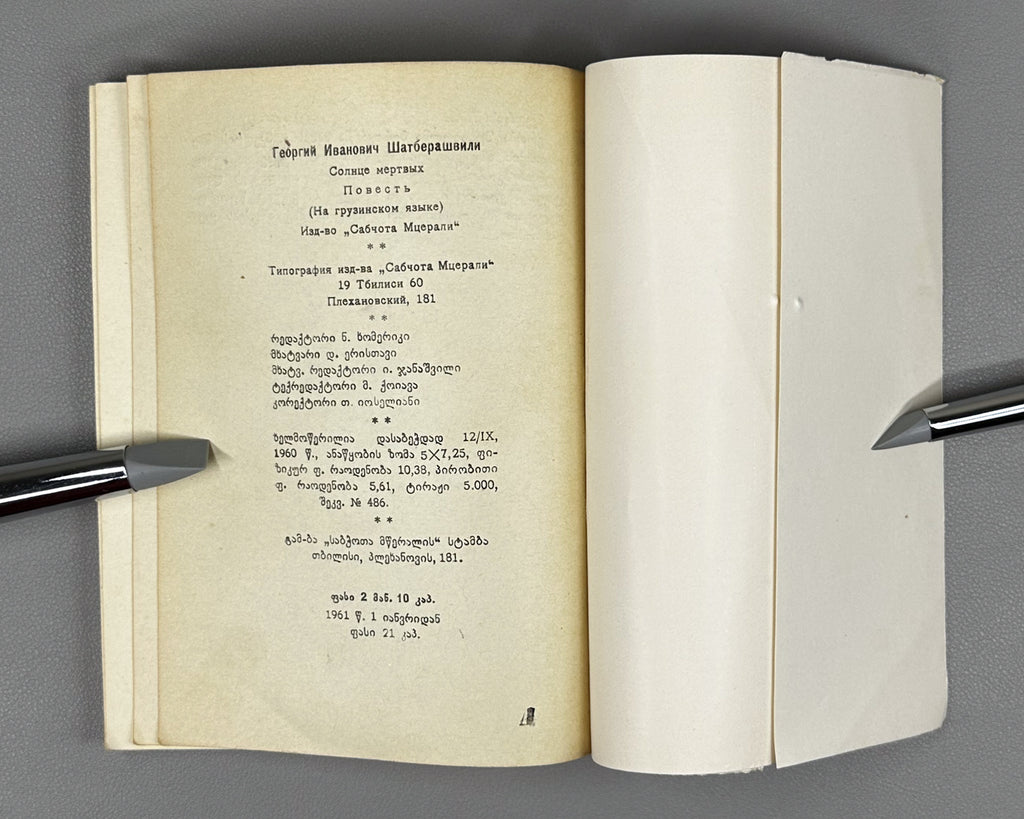 Георгий Иванович Шатберашвили
Солнце мертвых
Повесть
(На грузинском языке)
Изд-во „Сабчота Мцерали“
* *
Типография изд-ва „Сабчота Мцерали“
19 Тбилиси 60
Плехановский, 181
* *
რედაქტორი ნ. ხომერიკი
მხატვარი დ. ერისთავი
მხატვ. რედაქტორი ი. ჯანაშვილი
ტექრედაქტორი მ. ქოიავა
კორექტორი თ. იოსელიანი
* *
ხელმოწერილია დასაბეჭდად 12/IX,
1960 წ., ანაწყობის ზომა 5X7,25, ფი-
ზიკურ ფ. რაოდენობა 10,38, პირობითი
ფ. რაოდენობა 5,61, ტირაჟი 5.000,
შეკვ. № 486.
* *
გამ-ბა „საბჭოთა მწერალის“ სტამბა
თბილისი, პლეხანოვის, 181.
ფასი 2 მან. 10 კაპ.
1961 წ. 1 იანვრიდან
ფასი 21 კაპ.